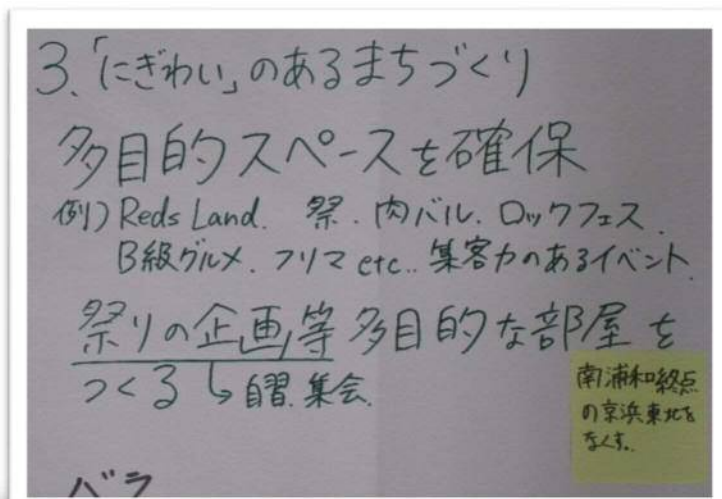 3、「にぎわい」のあるまちづくり
多目的スペースを確保
例) Reds Land. 祭. 肉バル. ロックフェス.
B級グルメ. フリマ etc.. 集客力のあるイベント.
祭りの企画等 多目的な部屋を
つくる ↳ 自習. 集会.
南浦和終点
の京浜東北を
なくす。
バラ